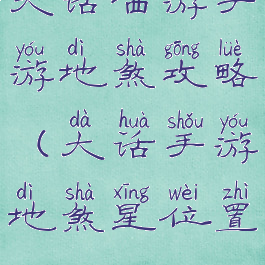 大话西游手
yóu dì shà gōng lüè
游地煞攻略
dà huà shǒu yóu
（大话手游
dì shà xīng wèi zhì
地煞星位置